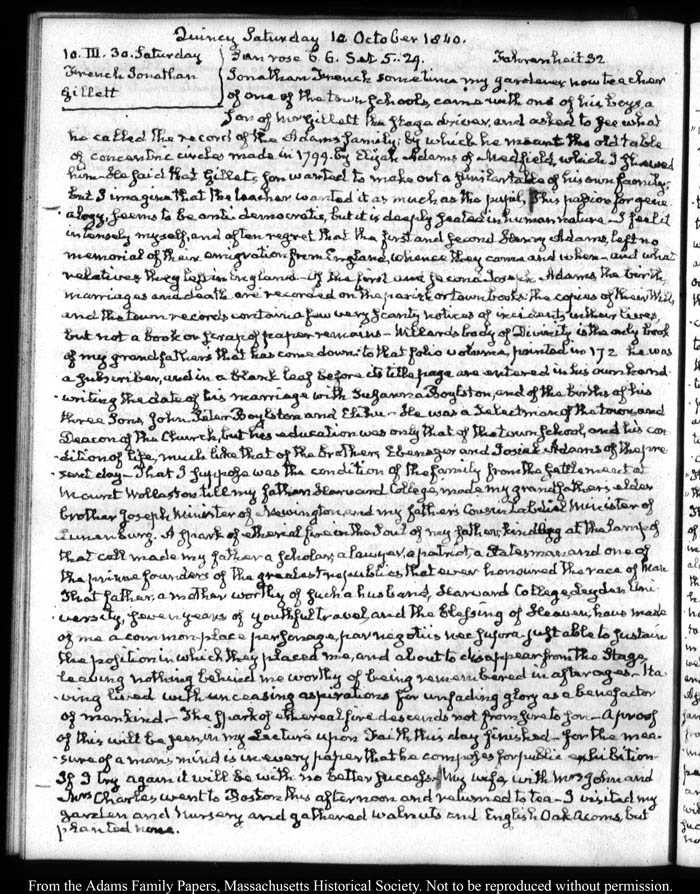 Quincy Saturday 10 October 1840.
10. III. 30. Saturday
French Jonathan
Gillett
Sun rose 6. 6. Set 5. 24. Fahrenheit 32
Jonathan French sometime my gardener now teacher
of one of the town schools, came with one of his boys, a
son of Mr Gillett the stage driver, and asked to see what
he called the record of the Adams family; by which he meant the old table
of concentric circles made in 1799. by Elijah Adams of Medfield, which I shewed
him. He said that Gillett's son wanted to make out a similar table of his own family;
but I imagine that the teacher wanted it as much as the pupil. This passion for gene
-alogy, seems to be anti-democratic, but it is deeply seated in human nature. I feel it
intensely myself, and often regret that the first and second Henry Adams, left no
memorial of their emigration from England, whence they came and when and what
relatives they left in England. Of the first and second Joseph Adams the birth,
marriages and death are recorded on the parish or town books: the copies of their Wills
and the town records contain a few very scanty notices of incidents in their lives,
but not a book or scrap of paper remains. Willards body of Divinity is the only book
of my grandfathers that has come down: to that folio volume, printed in 172 he was
a subscriber, and in a blank leaf before its title page are entered in his own hand
writing the date of his marriage with Susanna Boylston, and of the births of his
three Sons, John, Peter Boylston and Elihu. He was a Selectman of the town, and
Deacon of the Church, but his education was only that of the town school, and his con
-dition of life, much like that of the brothers Ebenezer and Josiah Adams of the pre
sent day. That I suppose was the condition of the family from the settlement at
Mount Wollaston till my father. Harvard College, made my grandfather's elder
brother Joseph Minister of Newington, and my father's Cousin Zabdiel Minister of
Lunenburg. A spark of etherial fire in the soul of my father, kindling at the lamp of
that cell made my father a scholar, a lawyer, a patriot, a Statesman and one of
the prime founders of the greatest republics that ever honoured the race of Man
That father, a mother worthy of such a husband, Harvard College, Leyden Uni
-versity, seven years of youthful travel, and the blessing of Heaven, have made
of me a common-place personage, par negotiis nec supra. just able to sustain
the position in which they placed me, and about to disappear from the Stage
leaving nothing behind me worthy of being remembered in after ages. Ha
-ving lived with unceasing aspirations for unfading glory as a benefactor
of mankind. The spark of ethereal fire descends not from sire to son. A proof
of this will be seen in my Lecture upon Faith, this day finished. for the mea
-sure of a man's mind is in every paper that he composes for public exhibition.
If I try again it will be with no better success. My wife, with Mrs John and
Mrs Charles went to Boston this afternoon and returned to tea. I visited my
garden and nursery and gathered walnuts and English Oak Acorns, but
planted none.
From the Adams Family Papers, Massachusetts Historical Society. Not to be reproduced without permission.